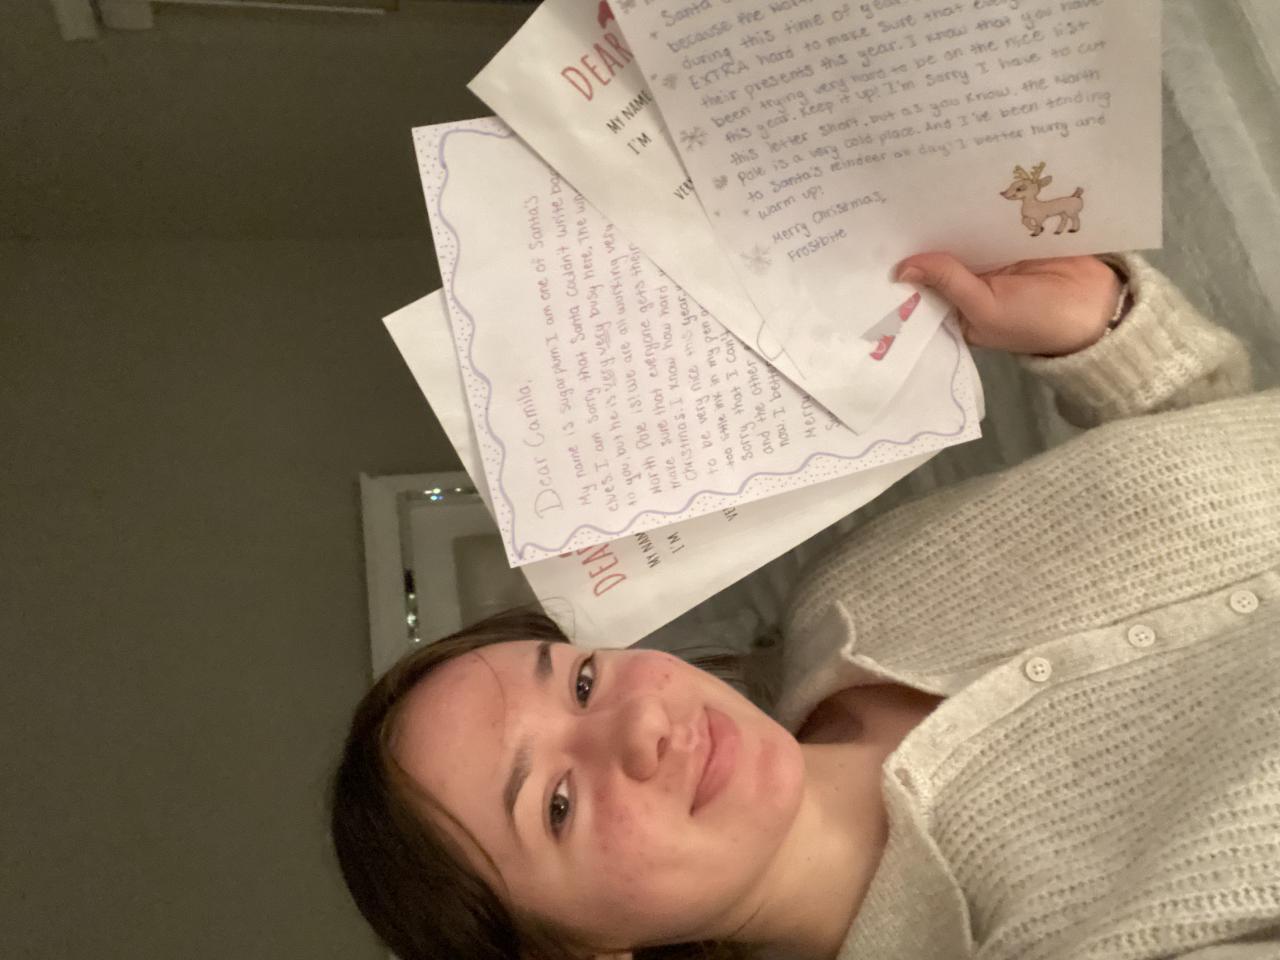 Santa
because the Nort
during this time of year.
EXTRA hard to make sure that every
their presents this year. I know that you have
been trying very hard to be on the nice list
this year. Keep it up! I'm sorry I have to cut
this letter short, but as you know, the North
Pole is a very cold place. And I've been tending
to Santa's reindeer all day! I better hurry and
warm up!
Merry Christmas,
Frostbite
DEAR
MY NAME
I'M
VER
Dear Camila,
My name is sugarplum I am one of Santa's
elves. I am sorry that Santa couldn't write bac
to you, but he is very very busy here. The wh
North Pole is! We are all working very
make sure that everyone gets their
Christmas. I know how hard
to be very nice this year.
too little ink in my pen
sorry that I can't
and the other
now I better
Merry
DEAR
MY NAM
I'M
VE